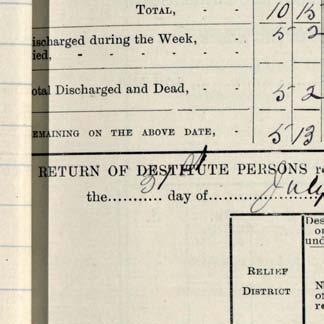 TOTAL, - - 10 15
ischarged during the Week, - 5 2
ied, - - - - - - -
otal Discharged and Dead, - - 5 2
EMAINING ON THE ABOVE DATE, - 5 13
RETURN OF DESTITUTE PERSONS re
the 31st day of July
Des
o
und
RELIEF
DISTRICT
N
of
re